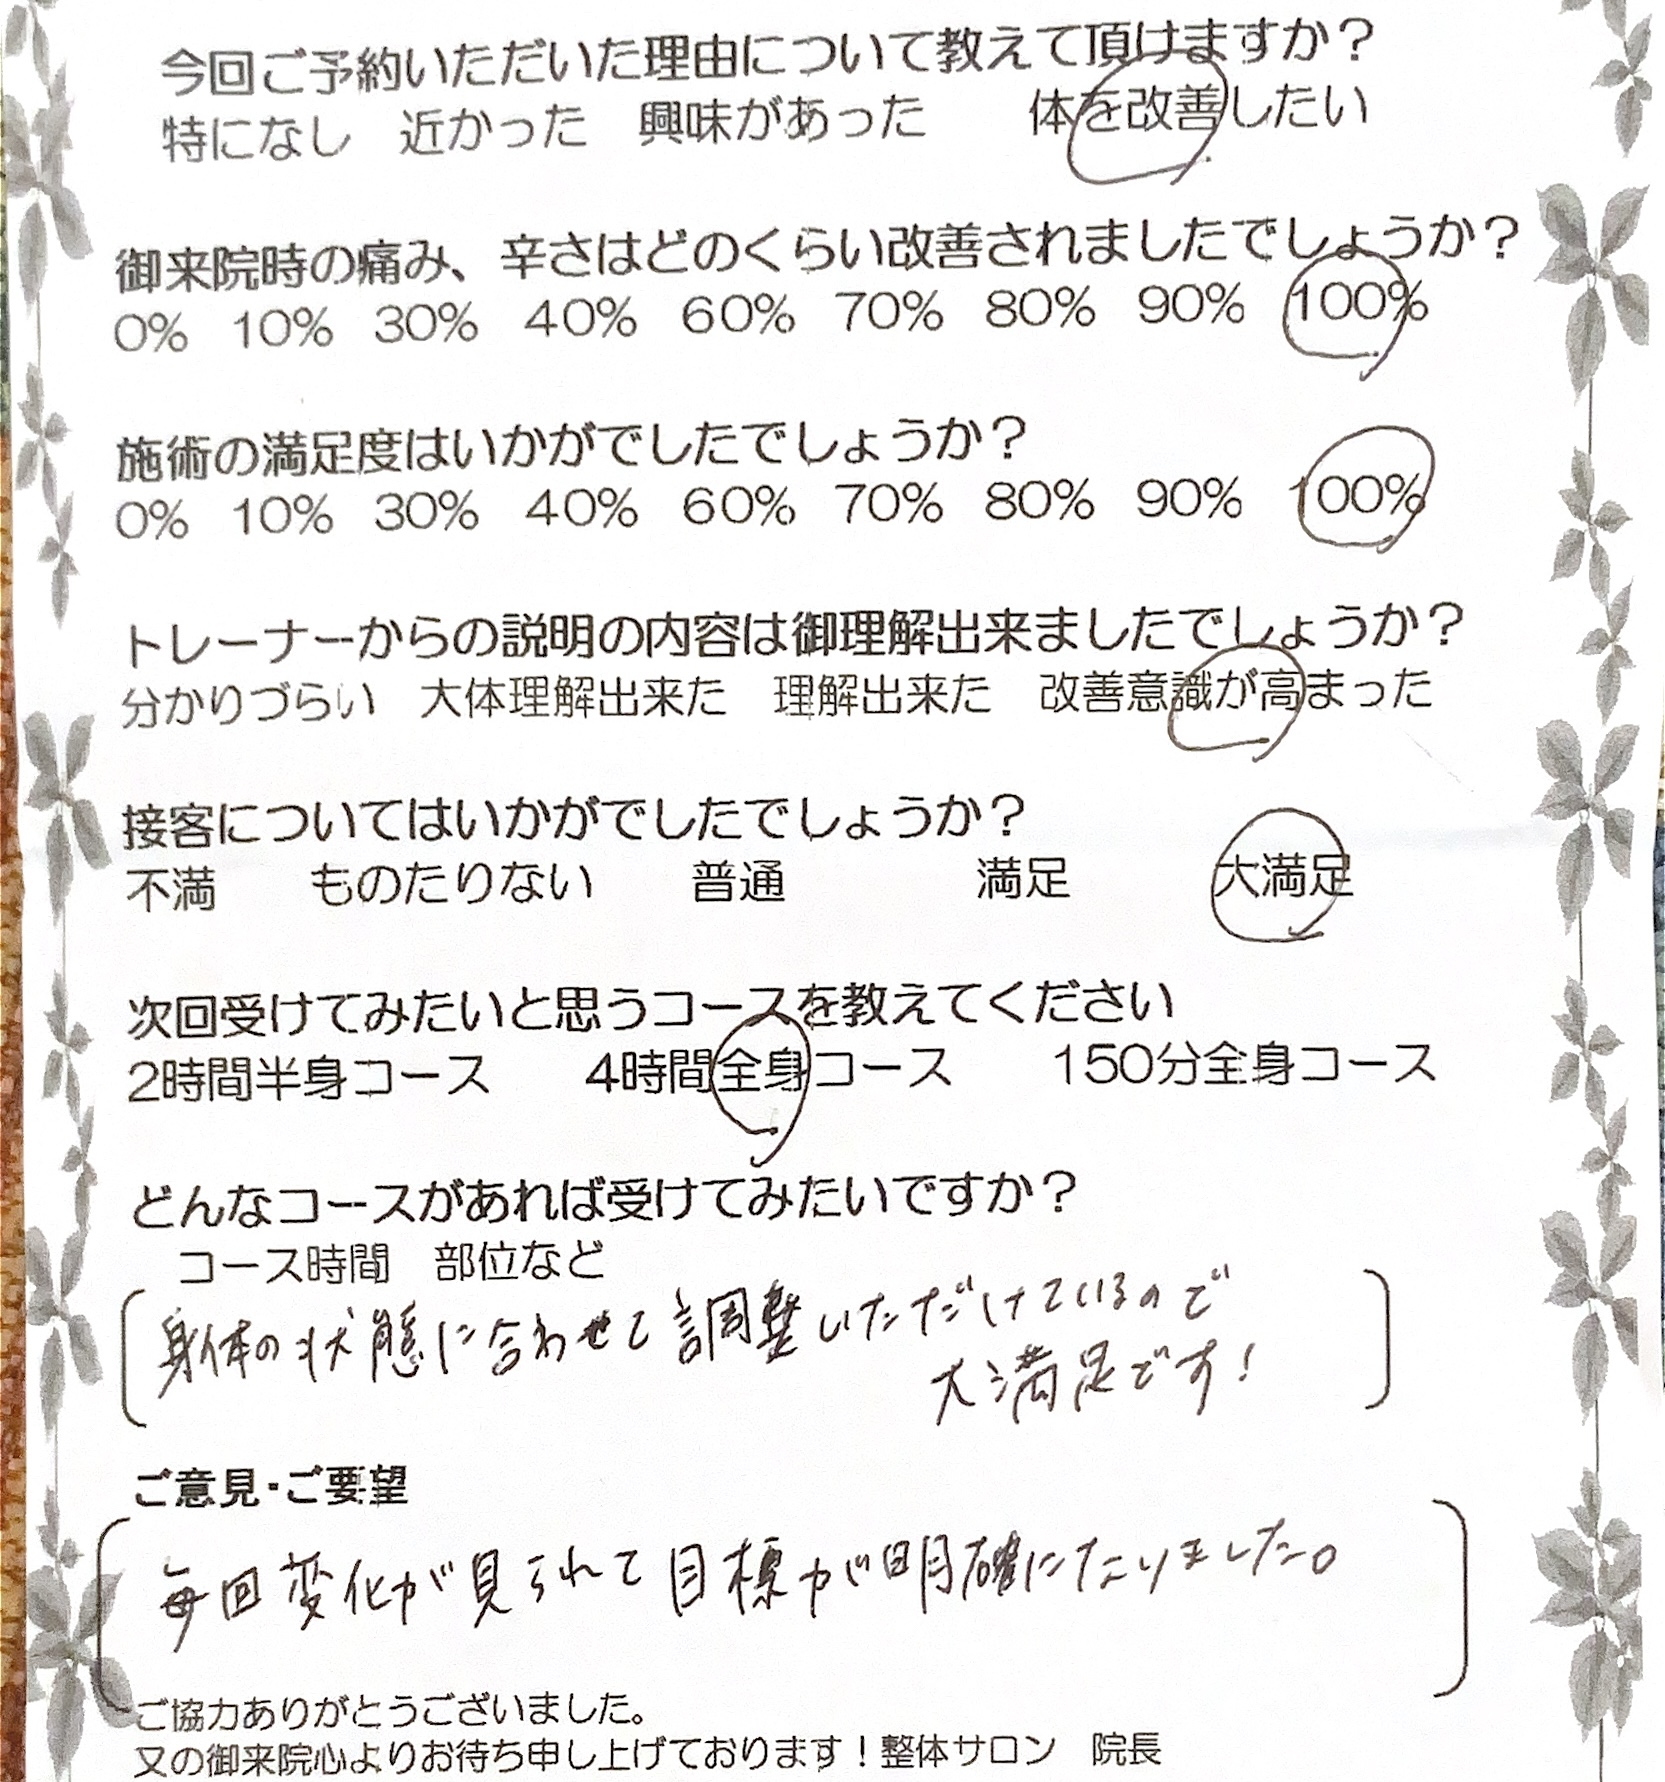 今回ご予約いただいた理由について教えて頂けますか？
特になし 近かった 興味があった 体を改善したい
御来院時の痛み、辛さはどのくらい改善されましたでしょうか？
0% 10% 30% 40% 60% 70% 80% 90% 100%
施術の満足度はいかがでしたでしょうか？
0% 10% 30% 40% 60% 70% 80% 90% 100%
トレーナーからの説明の内容は御理解出来ましたでしょうか？
分かりづらい 大体理解出来た 理解出来た 改善意識が高まった
接客についてはいかがでしたでしょうか？
不満 ものたりない 普通 満足 大満足
次回受けてみたいと思うコースを教えてください
2時間半身コース 4時間全身コース 150分全身コース
どんなコースがあれば受けてみたいですか？
コース時間 部位など
身体の状態に合わせて調整いただけているので
大満足です!
ご意見・ご要望
毎回変化が見られて目標が明確になりました。
ご協力ありがとうございました。
又の御来院心よりお待ち申し上げております！整体サロン 院長